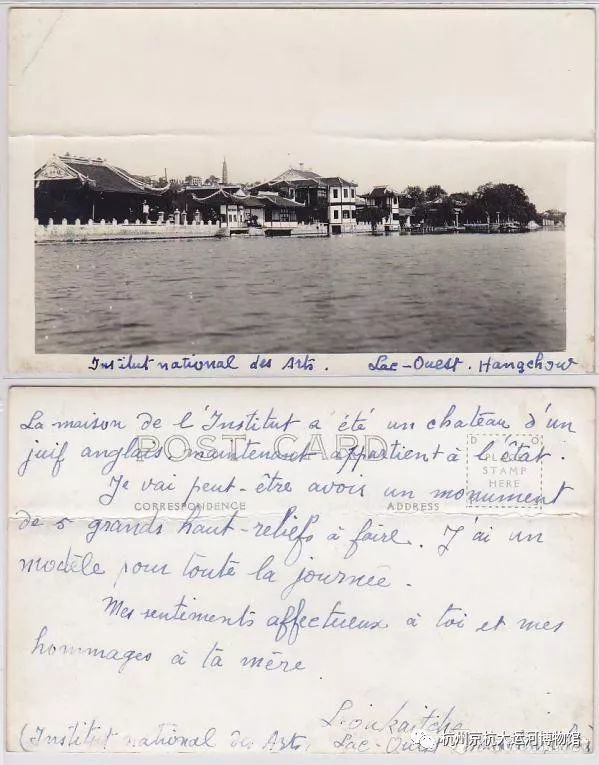 Institut national des Arts. Lac-Ouest. Hangchow
La maison de l'Institut a été un chateau d'un
juif anglais, maintenant appartient à l'état.
POST CARD
PLACE
STAMP
HERE
Je vai peut-être avois un monument
CORRESPONDENCE
ADDRESS
de 5 grands haut-reliefs à faire. J'ai un
modèle pour toute la journée.
Mes sentiments affectueux à toi et mes
hommages à ta mère
Lioukaitche
(Institut national des Arts, Lac-Ouest
杭州京杭大运河博物馆